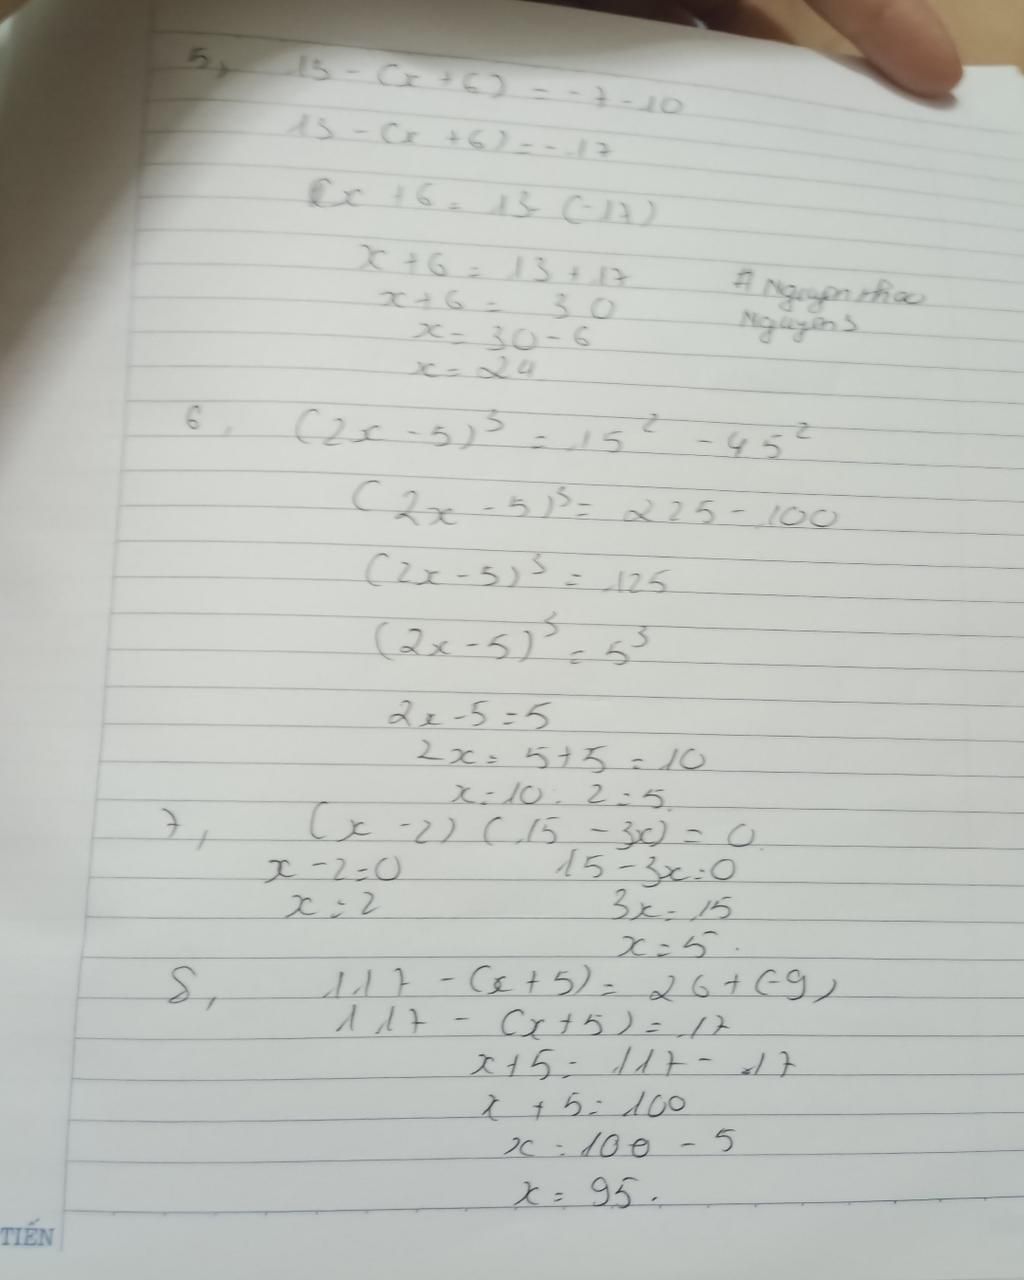 5, 13 - (x + 6) = - 7 - 10
13 - (x + 6) = - 17
(x + 6 = 13 (-17)
x + 6 = 13 + 17
x + 6 = 30
x = 30 - 6
x = 24
# Nguyen
Nguyen
6, (2x - 5)³ = 15² - 45²
(2x - 5)³ = 225 - 100
(2x - 5)³ = 125
(2x - 5)³ = 5³
2x - 5 = 5
2x = 5 + 5 = 10
x = 10 : 2 = 5.
7, (x - 2) (15 - 3x) = 0
x - 2 = 0 15 - 3x = 0
x = 2 3x = 15
x = 5.
8, 117 - (x + 5) = 26 + (-9)
117 - (x + 5) = 17
x + 5 = 117 - 17
x + 5 = 100
x = 100 - 5
x = 95.
TIẾN